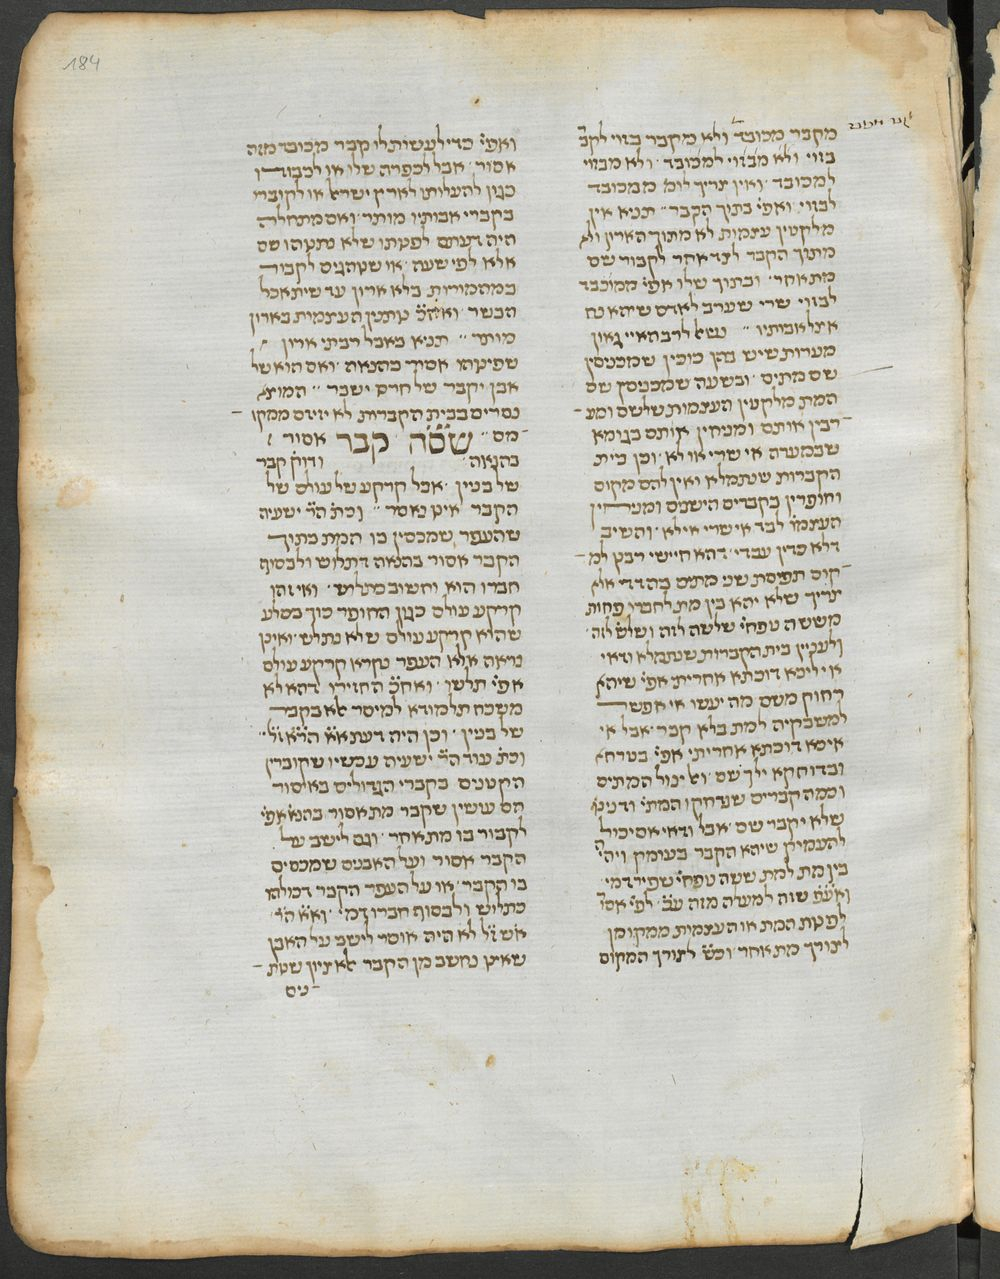 184
מקבר מכובד ולא מקבר בזוי לקב׳
בזוי ולא מבזוי למכובד ולא מבזוי
למכובד ואין צריך לומ׳ ממכובד
לבזוי ואפי׳ בתוך הקבר ״ תניא אין
מלקטין עצמות לא מתוך הארון ולא
מתוך הקבר לצד אחר לקבור שם
מת אחר ׳ ובתוך שלו אפי׳ ממכובד
לבזוי שרי שערב לאדם שיהא נח
אצל אבותיו ״ נשאל לרב האיי גאון
מערות שיש בהן כוכין שמכניסין
שם מתים ׳ ובשעה שמכניסין שם
המת מלקטין העצמות שלשם ומע־
־רבין אותם ומניחין אותם בגומא
שבמערה אי שרי או לא ׳ וכן בית
הקברות שנתמלא ואין להם מקום
וחופרין בקברים הישנים ומניחין
העצמו׳ לבד אי שרי אי לא ׳ והשיב
דלא כדין עבדי ׳ דהא חיישי רבנן למ־
־קום תפיסת שני מתים בהדדי אלא
צריך שלא יהא בין מת לחברו פחות
מששה טפחי׳ שלשה לזה ושלש׳ לזה ׳
ולענין בית הקברות שנתמלא ודאי
אי ליכא דוכתא אחרית׳ אפי׳ שיהא
רחוק משם מה יעשו אי אפשר
למשבקיה למת בלא קבר ׳ אבל אי
איכא דוכתא אחריתי אפי׳ בטרחא
ובדוחקא ילך שם ולא ינוול המתים
וכמה קברים שנדחקו המתי׳ ודנינן
שלא יקבר שם ׳ אבל ודאי אם יכול
להעמיק שיהא הקבר בעומק ויהי׳
בין מת למת ששה טפחי׳ שפיר דמי ׳
ואע״פ שזה למעלה מזה ע״כ ׳ לפי׳ אסו׳
לפנות המת או העצמות ממקומן
לצורך מת אחר ׳ וכ״ש לצורך המקום
ואפי׳ כדי לעשות לו קבר מכובד מזה
אסור ׳ אבל לכפרה שלו או לכבודו
כגון להעלותו לארץ ישראל או לקוברו
בקברי אבותיו מותר ׳ ואם מתחלה
היה דעתם לפנותו שלא נתנוהו שם
אלא לפי שעה ׳ או שנוהגים לקבור
במהמורות בלא ארון עד שיתאכל
הבשר ׳ ואח״כ נותנין העצמות בארון
מותר ״ תניא באבל רבתי ארון
שפינוהו אסור בהנאה ׳ ואם הוא של
אבן יקבר של חרס ישבר ״ המוצא
נסרים בבית הקברות לא יזיזם ממקו־
־מם ״ שס״ה קבר אסור
בהנאה ׳ ודוק׳ קבר
של בניין ׳ אבל קרקע של עולם של
הקבר אינו נאסר ״ וכת׳ הר׳ ישעיה
שהעפר שמכסין בו המת בתוך
הקבר אסור בהנאה דתלוש ולבסוף
חברו הוא וחשוב כתלוש ׳ ואי זהו
קרקע עולם כגון החופר כוך בסלע
שהוא קרקע עולם שלא נתלש ׳ ואינו
נראה אלא העפר נקרא קרקע עולם
אפי׳ תלשו ׳ ואח״כ החזירו דהא לא
משכח תלמודא למיסר אלא בקבר
של בניין ׳ וכן היה דעת א״א הרא״ש ז״ל ׳
וכת׳ עוד הר׳ ישעיה עכשיו שקוברין
הקטנים בקברי הגדולים באיסור
הם עושין שקבר מת אסור בהנא׳ אפי׳
לקבור בו מת אחר ׳ וגם לישב על
הקבר אסור ועל האבנים שמכסים
בו הקבר ׳ או על העפר הקבר דכולהו
כתלוש ולבסוף חברו דמי ׳ וא״א הר׳
אש ז״ל לא היה אוסר לישב על האבן
שאינו נחשב מן הקבר אלא ציון שנות־
־נים